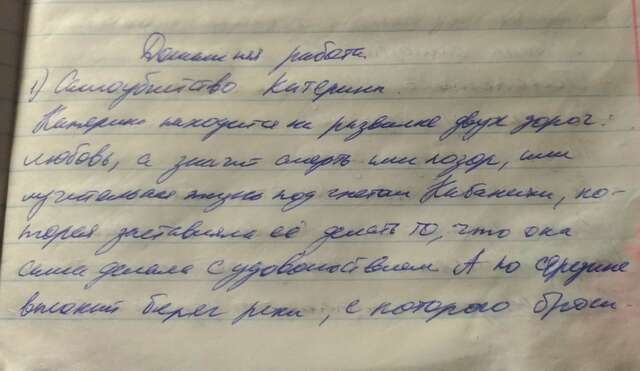 Домашняя работа.
1) Самоубийство Катерины.
Катерина находится на развилке двух дорог:
любовь, а значит смерть или позор, или
мучительная жизнь под гнётом Кабанихи, ко-
торая заставляла её делать то, что она
сама делала с удовольствием. А по середине
высокий берег реки, с которого броси-